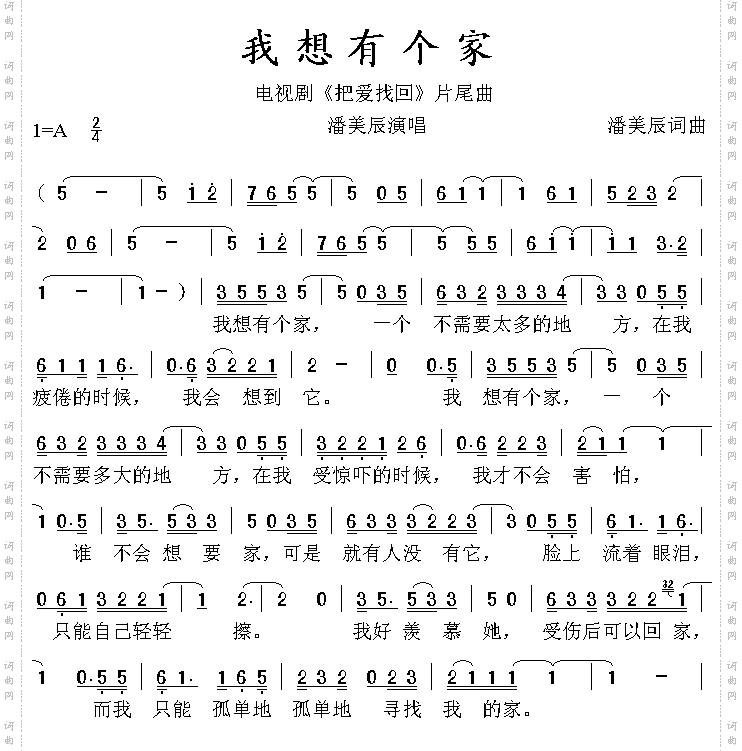 我想有个家
电视剧《把爱找回》片尾曲
1=A 2/4 潘美辰演唱 潘美辰词曲
( 5 - | 5 1 2 | 7 6 5 5 | 5 0 5 | 6 1 1 | 1 6 1 | 5 2 3 2 |
2 0 6 | 5 - | 5 1 2 | 7 6 5 5 | 5 5 5 | 6 1 1 | 1 1 3·2 |
1 - | 1 - ) | 3 5 5 3 5 | 5 0 3 5 | 6 3 2 3 3 3 4 | 3 3 0 5 5 |
我想有个家， 一个 不需要太多的地 方，在我
6 1 1 1 6· | 0·6 3 2 2 1 | 2 - | 0 0·5 | 3 5 5 3 5 | 5 0 3 5 |
疲倦的时候， 我会 想到 它。 我 想有个家， 一 个
6 3 2 3 3 3 4 | 3 3 0 5 5 | 3 2 2 1 2 6 | 0·6 2 2 2 | 2 1 1 1 |
不需要多大的地 方，在我 受惊吓的时候， 我才不会 害 怕，
1 0·5 | 3 5· 5 3 3 | 5 0 3 5 | 6 3 3 3 2 2 3 | 3 0 5 5 | 6 1· 1 6· |
谁 不会 想 要 家，可是 就有人没 有它， 脸上 流着 眼泪，
0 6 1 3 2 2 1 | 1 2· | 2 0 | 3 5· 5 3 3 | 5 0 | 6 3 3 3 2 2 32 1 |
只能自己轻轻 擦。 我好 羡 慕 她， 受伤后可以回 家，
1 0·5 5 | 6 1· 1 6 5 5 | 2 2 2 0 2 3 | 2 1 1 | 1 - |
而我 只能 孤单地 孤单地 寻找 我 的家。
词曲网
词曲网
词曲网
词曲网
词曲网
词曲网
词曲网
词曲网
词曲网
词曲网
词曲网
词曲网